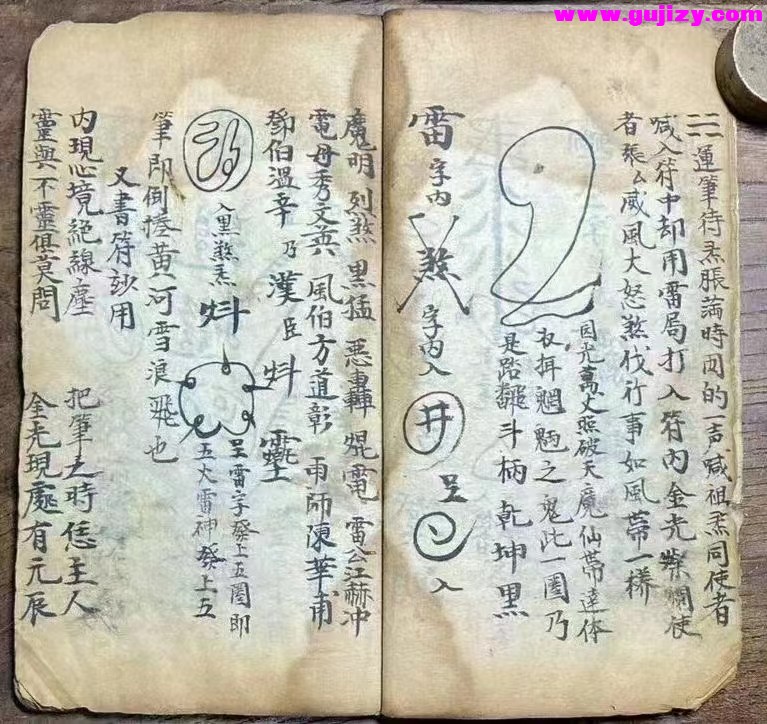 www.gujizy.com
三運筆待炁脹滿時囬的一声喊祖炁同使者
喊入符中却用雷局打入符內金光燦爛使
者張厶威風大怒煞伐行事如風帶一樣
目光萬丈照破天魔仙帶達体
魍魎之鬼此一圈乃
是踏翻斗柄乾坤黑
雷字內煞字內入井呈入
魔明烈煞黑猛惡轟焜電雷公江赫冲
電母秀文英風伯方道彰雨師陳華甫
鄧伯溫辛乃漢臣炓
入黑煞炁炓
呈雷字發上五圈即
五大雷神發上五
筆即倒捲黃河雪浪飛也
又書符妙用
內現心境絕線塵把筆之時恁主人
靈與不靈俱莫問金光現處有元辰